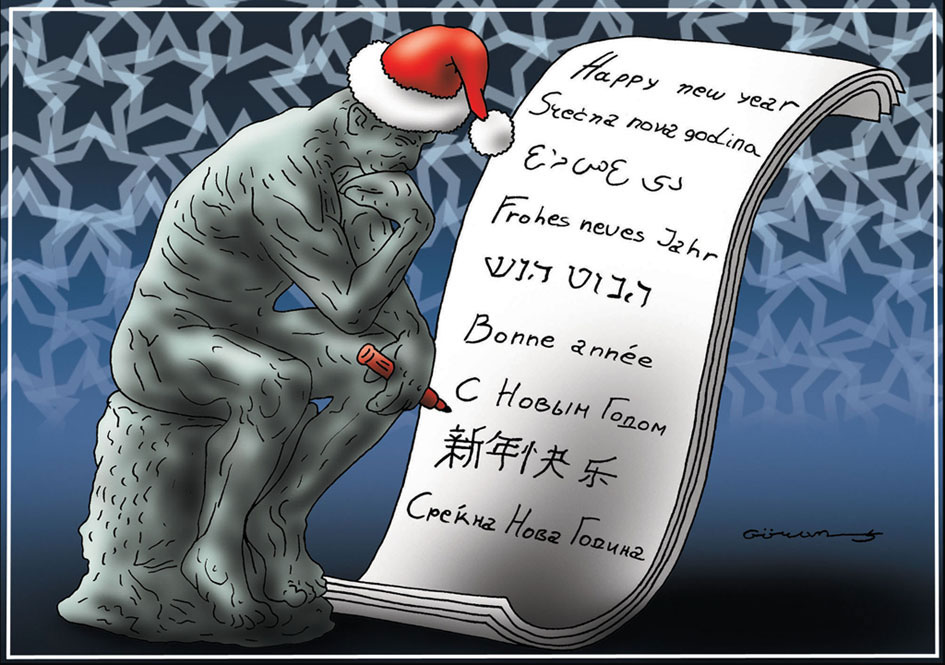 Happy new year
Srećna nova godina
Frohes neues Jahr
Bonne année
С Новым Годом
新年快乐
Среќна Нова Година